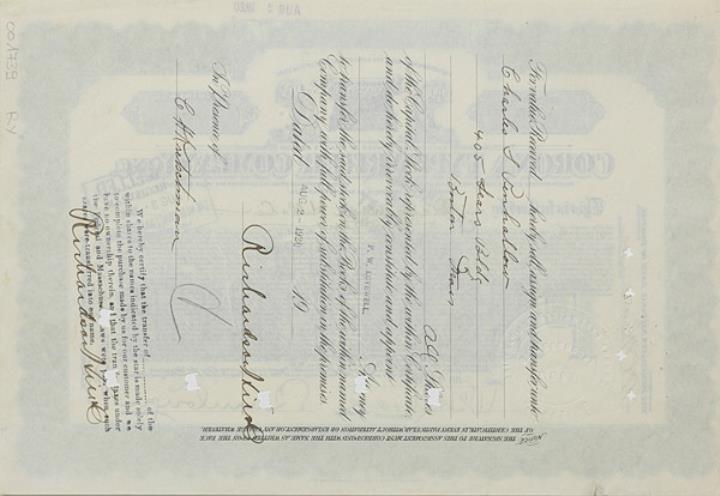 For value Received hereby sell, assign and transfer unto
Charles L. Penhallow
405 Sears Bldg
Boston Mass
All Shares
of the Capital Stock represented by the within Certificate,
and do hereby irrevocably constitute and appoint
F. W. LOVEWELL Attorney
to transfer the said stock on the Books of the within named
Company, with full power of substitution in the premises
Dated AUG 2 - 1920 19
Richardson, Hill &
In Presence of
We hereby certify that the transfer of of the
within shares to the names indicated by the star is made solely
to complete the purchase made by us for our customer and
have no ownership therein, and that the transfer taxes under
the Federal and Massachusetts laws were when such
shares were transferred into our name.
Richardson, Hill &
NOTICE THE SIGNATURE TO THIS ASSIGNMENT MUST CORRESPOND WITH THE NAME AS WRITTEN UPON THE FACE
OF THE CERTIFICATE IN EVERY PARTICULAR WITHOUT ALTERATION OR ENLARGEMENT OR ANY CHANGE WHATEVER.
CORONA TYPEWRITER COMPANY
AUG 2 1920
001739